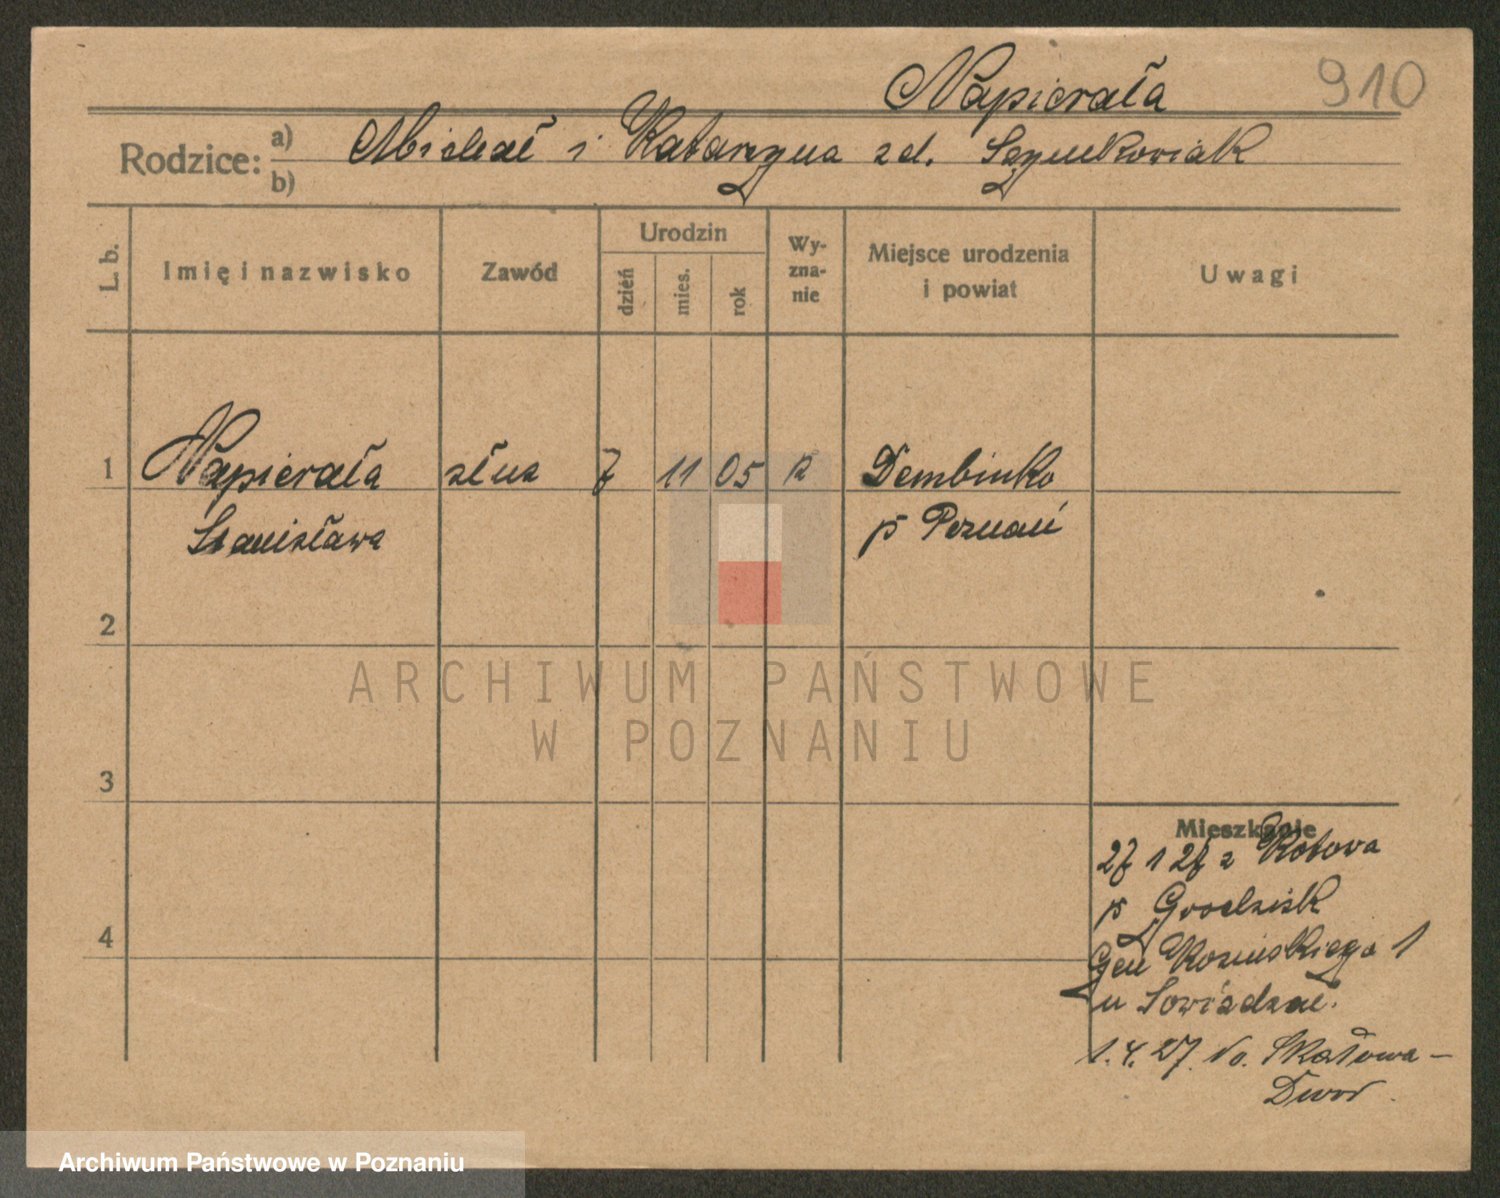 910
Napierała
Rodzice: a) Michał i Katarzyna zd. Szymkowiak
b)
L. b.
Imię i nazwisko
Zawód
Urodzin
dzień
mies.
rok
Wy-
zna-
nie
Miejsce urodzenia
i powiat
Uwagi
1 Napierała służ 7 11 05 rz Dembinko
Stanisława p Poznań
2
3
4
Mieszkanie
27 1 27 z Kotowa
p Grodzisk
Gen Kosińskiego 1
u
1.4.27. do Skałowa –
Dwór.
ARCHIWUM PAŃSTWOWE
W POZNANIU
Archiwum Państwowe w Poznaniu